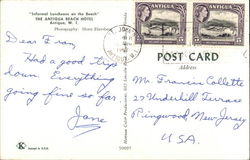 "Informal Luncheons on the Beach"
THE ANTIGUA BEACH HOTEL
Antigua, W. I.
ANTIGUA
ANTIGUA
POST CARD
Address
Dear Fran,
Had a good trip
down. Everything
going fine so far
Jane
Mr. Francis Collette
27 Underhill Terrace
Ringwood New Jersey
U.S.A.
K